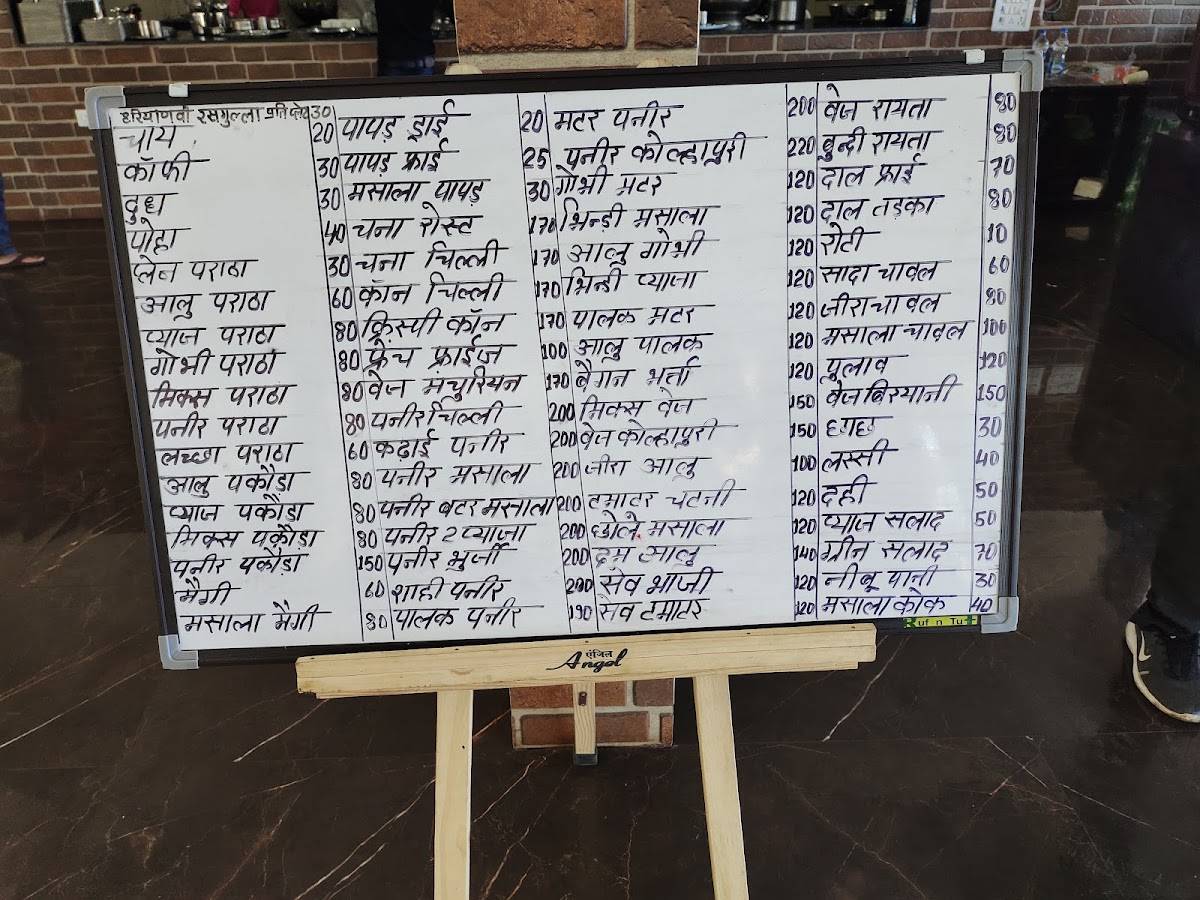 हरियाणवी रसगुल्ला प्रति प्लेट 30
चाय 20
कॉफी 30
दुध 30
पोहा 40
प्लेन पराठा 30
आलु पराठा 60
प्याज पराठा 80
गोभी पराठा 80
मिक्स पराठा 80
पनीर पराठा 80
लच्छा पराठा 60
आलु पकौड़ा 80
प्याज पकौड़ा 80
मिक्स पकौड़ा 80
पनीर पकौड़ा 150
मैगी 60
मसाला मैगी 80
पापड़ ड्राई 20
पापड़ फ्राई 25
मसाला पापड़ 30
चना रोस्ट 170
चना चिल्ली 170
कॉन चिल्ली 170
क्रिस्पी कॉन 170
फ्रेंच फ्राईज 100
वेज मचुरियन 170
पनीर चिल्ली 200
कढ़ाई पनीर 200
पनीर मसाला 200
पनीर बटर मसाला 200
पनीर 2 प्याजा 200
पनीर भुर्जी 200
शाही पनीर 200
पालक पनीर 190
मटर पनीर 200
पनीर कोल्हापुरी 220
गोभी मटर 120
भिन्डी मसाला 120
आलु गोभी 120
भिन्डी प्याजा 120
पालक मटर 120
आलु पालक 120
बैगन भर्ता 120
मिक्स वेज 150
वेज कोल्हापुरी 150
जीरा आलु 100
टमाटर चटनी 120
छोले मसाला 120
दम आलु 140
सेव भाजी 120
सेव टमाटर 120
वेज रायता 80
बुन्दी रायता 80
दाल फ्राई 70
दाल तड़का 80
रोटी 10
सादा चावल 60
जीरा चावल 80
मसाला चावल 100
पुलाव 120
वेज बिरयानी 150
छाछ 30
लस्सी 40
दही 50
प्याज सलाद 50
ग्रीन सलाद 70
नीबू पानी 30
मसाला कोक 40
Ruf n Tuf
एंजिल
Angel